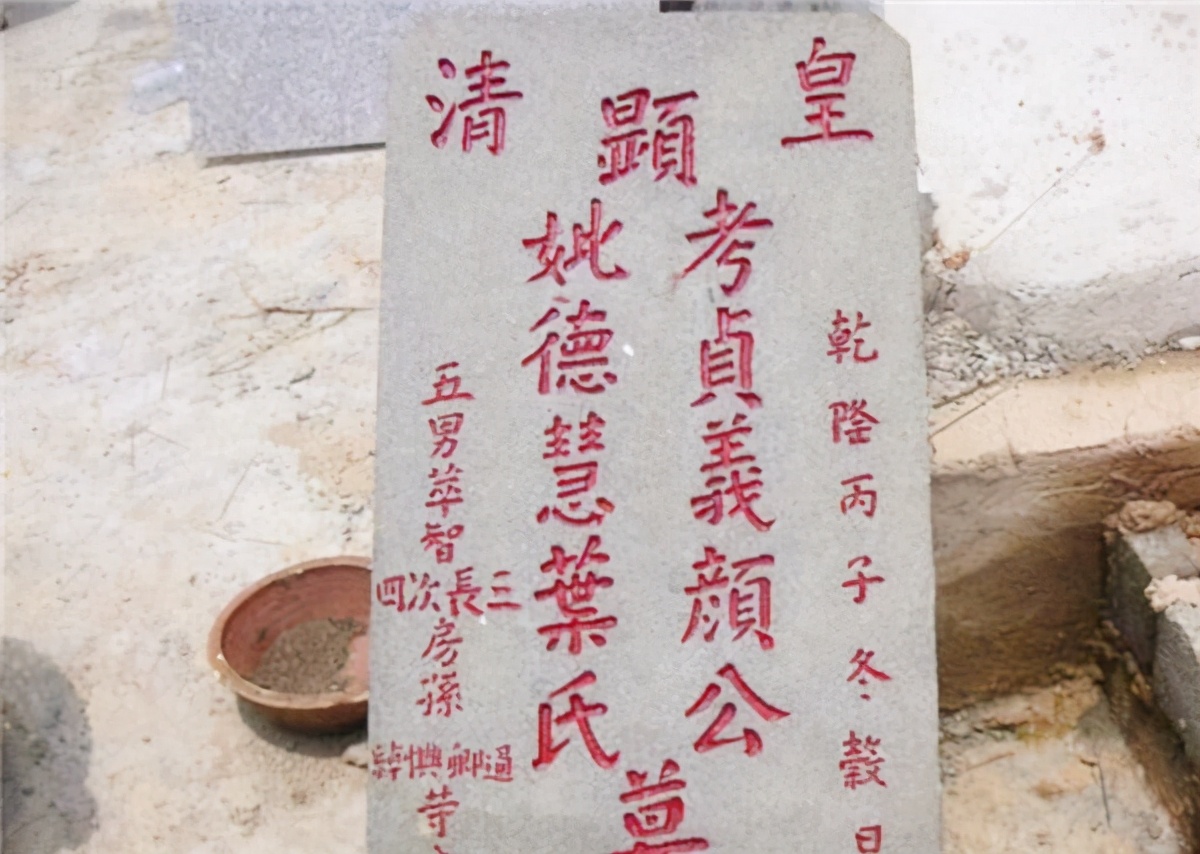 皇清
乾隆丙子冬穀日
顯
考貞義顔公
妣德慧葉氏
墓
五男萃智
三長次四
房孫
等